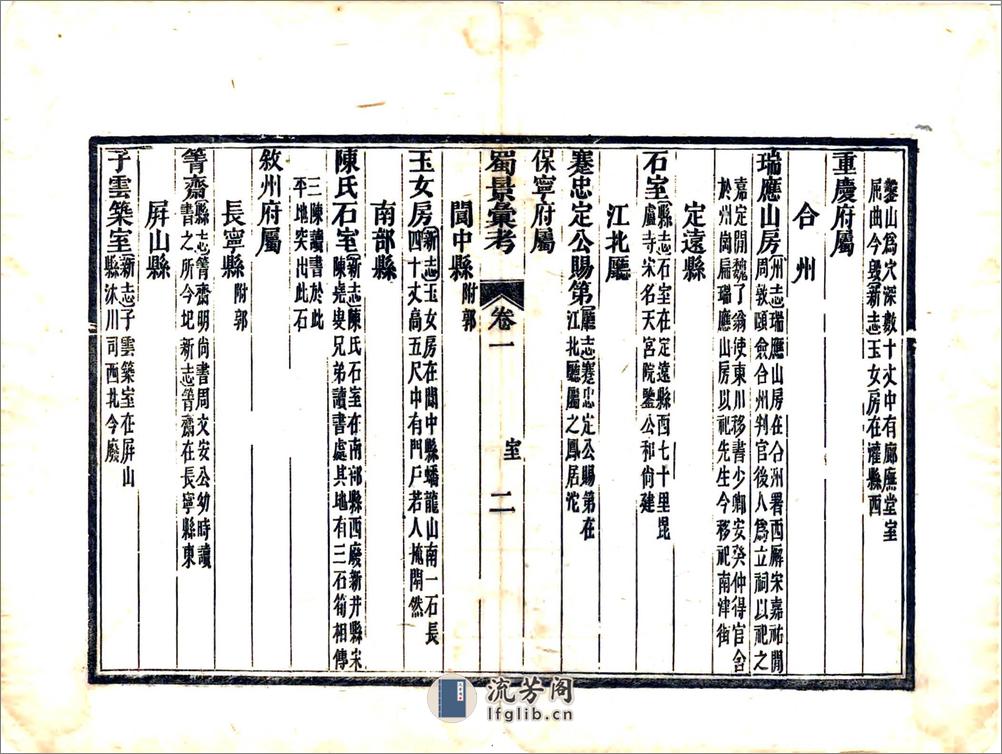 鑿山爲穴深數十丈中有廊廡堂室
屈曲今毀〔新志〕玉女房在灌縣西
重慶府屬
合州
瑞應山房〔州志〕瑞應山房在合州署西廨宋嘉祐閒
周敦頤僉合州判官後人爲立祠以祀之
嘉定閒魏了翁使東川移書少卿安癸仲得官舍
於州岡扁瑞應山房以祀先生今移祀南津街
定遠縣
石室〔縣志〕石室在定遠縣西七十里毘
盧寺宋名天宮院鑒公和尚建
江北廳
蹇忠定公賜第〔廳志〕蹇忠定公賜第在
江北廳屬之鳳居沱
保寧府屬
蜀景彙考 卷一 室 二
閬中縣附郭
玉女房〔新志〕玉女房在閬中縣蟠龍山南一石長
四十丈高五尺中有門戶若人掩閉然
南部縣
陳氏石室〔新志〕陳氏石室在南部縣西廢新井縣宋
陳堯叟兄弟讀書處其地有三石筍相傳
三陳讀書於此
平地突出此石
敘州府屬
長寧縣附郭
箐齋〔縣志〕箐齋明尚書周文安公幼時讀
書之所今圮〔新志〕箐齋在長寧縣東
屏山縣
子雲築室〔新志〕子雲築室在屏山
縣沐川司西北今廢
流芳阁
lfglib.cn